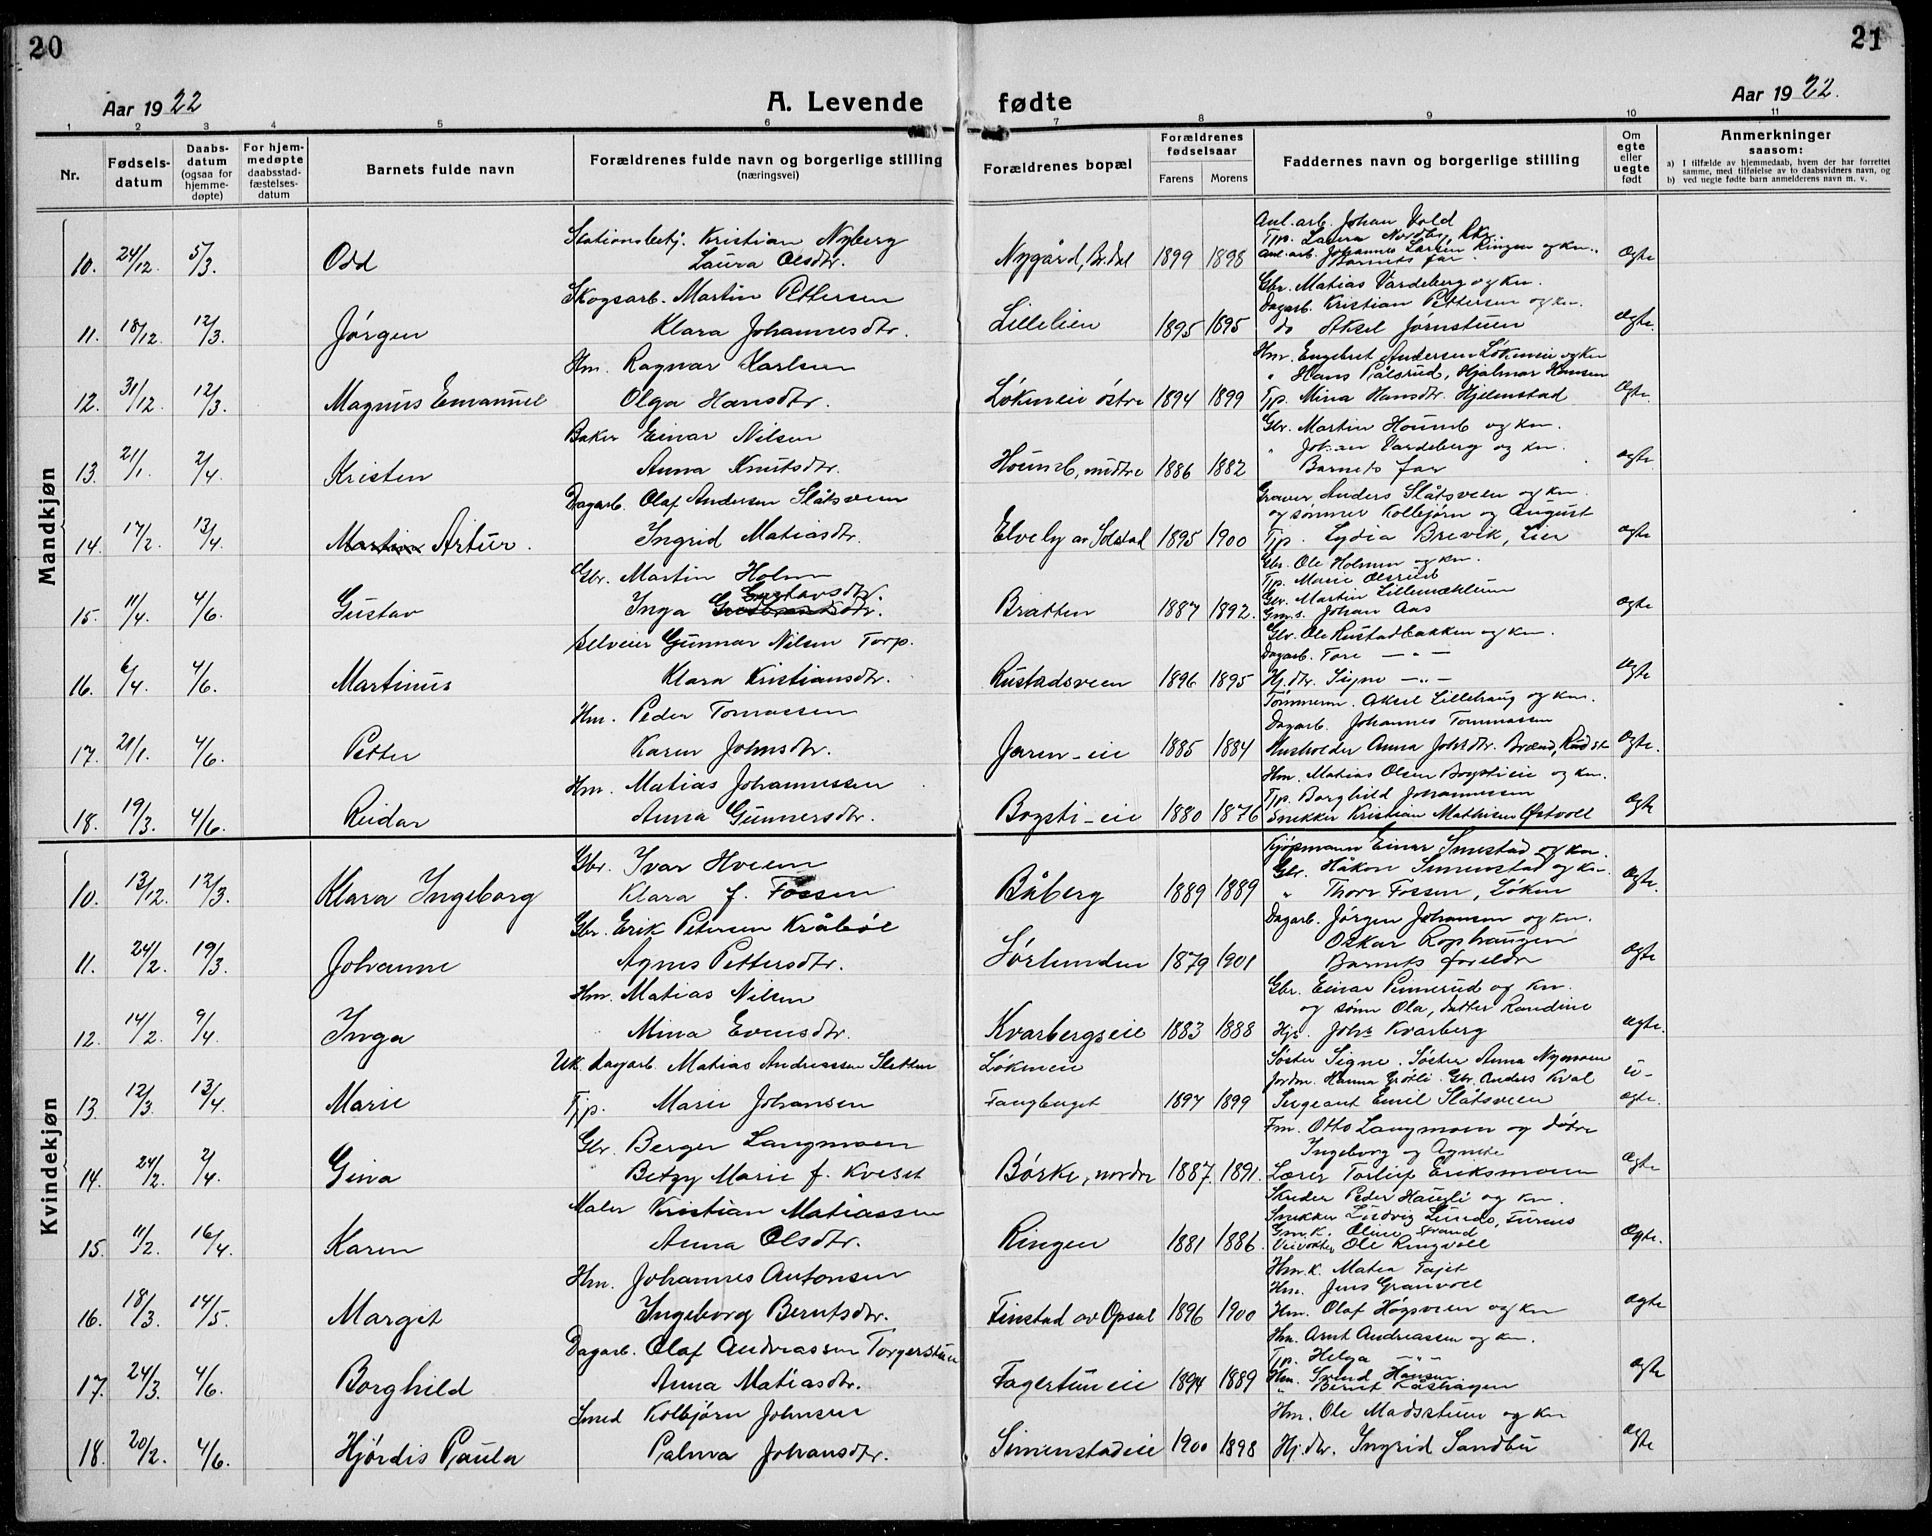 20
21
Aar 1922
A. Levende fødte
Aar 1922.
1 2 3 4 5 6 7 8 9 10 11
Nr.
Fødsels-
datum
Daabs-
datum
(ogsaa for
hjemme-
døpte)
For hjem-
medøpte
daabsstad-
fæstelses-
datum
Barnets fulde navn
Forældrenes fulde navn og borgerlige stilling
(næringsvei)
Forældrenes bopæl
Forældrenes
fødselsaar
Farens Morens
Faddernes navn og borgerlige stilling
Om
egte
eller
uegte
født
Anmerkninger
saasom:
a) I tilfælde av hjemmedaab, hvem der har forrettet
samme, med tilføielse av to daabsvidners navn, og
b) ved uegte fødte barn anmelderens navn m. v.
Mandkjøn
Stationsbetj. Kristian Nyberg
Anl. arb. Johan Vold
Tjp. Laura
10. 24/12. 5/3. Odd Laura Olsdtr. Nygård, Br.dal 1899 1898 Anl. arb. Johannes Larsen Ringen og kn. Ægte
Barnets far
Skogsarb. Martin Pettersen
Gbr. Matias Vardeberg og kn.
Dagarb. Kristian Pettersen og kn.
11. 18/12. 12/3. Jørgen Klara Johannesdtr. Lillelien 1895 1895 do Aksel Jørnstuen Ægte.
Hm. Ragnar Karlsen
Hm. Engebret Andersen Løkeneie og kn
" Hans Pålsrud, Hjalmar Hansen
12. 31/12. 12/3. Magnus Emanuel Olga Hansdtr. Løkeneie østre 1894 1899 Tjp. Mina Hansdtr. Hjelmstad Ægte.
Baker Einar Nilsen
Gbr. Martin Houmb og kn.
" Johan Vardeberg og kn.
13. 21/1. 2/4. Kristen Anna Knutsdtr. Houmb, midtre 1886 1882 Barnets far ægte.
Dagarb. Olaf Andersen Slåtsveen
Graver Anders Slåtsveen og kn.
og sønner Kolbjørn og August
14. 17/2. 13/4. Martin Artur. Ingrid Matiasdtr. Elveby av Solstad 1895 1900 Tjp. Lydia Brevik, Lier ægte
Gbr. Martin Holm
Gbr. Ole Holmen og kn.
Tjp. Marie Olsrud
Gustavsdtr.
Gbr. Martin Lillemæhlum
15. 11/4. 4/6. Gustav Inga Gudbrandsdtr. Bratten 1887 1892. Gm.s. Johan Aas ægte
Selveier Gunnar Nilsen Torp.
Gbr. Ole Rustadbakken og kn.
Dagarb. Tore — " —
16. 6/4. 4/6. Martinus Klara Kristiansdtr. Rustadsveen 1896 1895 Hj.dtr. Signe — " — Ægte
Hm. Peder Tomassen
Tømmerm. Aksel Lillehaug og kn.
Dagarb. Johannes Tommassen
17. 21/1. 4/6. Petter Karen Johnsdtr. Jaren-eie 1885 1884 Husholder Anna Johsdtr. Brænd, Rud st ægte.
Hm. Matias Johannessen
Hm. Matias Olsen Bogstieie og kn.
Tjp. Borghild Johannessen
18. 19/3. 4/6. Reidar Anna Gunnersdtr. Bogsti-eie 1880 1876 Snekker Kristian Mathisen Østvoll Ægte
Kvindekjøn
Gbr. Ivar Hveem
Kjøpmann Einar Smestad og kn.
Gbr. Håkon Simenstad og kn.
10. 13/12. 12/3. Klara Ingeborg Klara f. Fossen Båberg 1889 1889 " Thorv Fossen, Løken Ægte.
Gbr. Erik Petersen Kråbøl
Dagarb. Jørgen Johansen og kn.
Oskar Rophaugen
11. 24/2. 19/3. Johanne Agnes Pettersdtr. Sørlunden 1879 1901 Barnets foreldre ægte
Hm. Matias Nilsen
Gbr. Einar Pennerud og kn.
og sønn Ola, datter Randine
12. 14/2. 9/4. Inga Mina Evensdtr. Kvarbergseie 1883 1888 Hjs. Johs Kvarberg ægte.
Uk. dagarb. Matias Andreassen Sletten Løkeneie
Søster Signe. Søster Anna Nymoen
Jordm. Hanna Grøtli. Gbr. Anders Kval u-
13. 12/3. 13/4. Marie Tjp. Marie Johansen Fangberget 1897 1899 Sergeant Emil Slåtsveen ægte.
Gbr. Berger Langmoen
Fm. Otto Langmoen og døtre
Ingeborg og Agnete
14. 24/2. 2/4. Gina Betzy Marie f. Kveset Børke, nordre 1887. 1891. Lærer Torleif Eriksmoen Ægte
Maler Kristian Matiassen
Skreder Peder Haugli og kn.
Snekker Ludvig Lunds, Furnes
Gm.k. Oline Strand
15. 11/2. 16/4. Karen Anna Olsdtr. Ringen 1881 1886. Veivokter Ole Ringvoll Ægte.
Hm. Johannes Antonsen
Hm.k. Matea Tajet
Hm. Jens Granvoll
16. 18/3. 14/5. Margit Ingeborg Berntsdtr. Finstad av Opsal 1896 1900 Hm. Olaf Høgsveen og kn ægte
Dagarb. Olaf Andreassen Torgerstuen
Hm. Arnt Andreassen og kn.
Tjp. Helga — " —
Hm. Svend Hansen
17. 24/3. 4/6. Borghild Anna Matiasdtr. Fagertuneie 1894 1889 " Bernt Kåshagen ægte
Smed Kolbjørn Johnsen
Hm. Ole Madsstuen og kn
18. 20/2. 4/6. Hjørdis Paula Palma Johansdtr. Simenstadeie 1900 1898 Hj.dtr. Ingrid Sandbu ægte